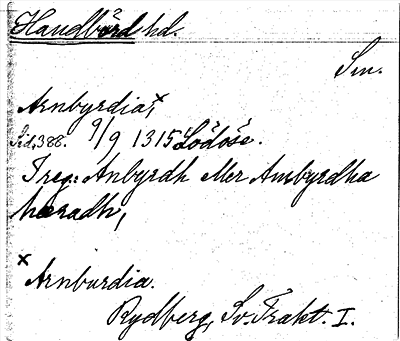 Handbörd hd.
Sm.
Arnbyrdia,×
s. 388. 9/9 1315 Lödöse.
I reg.: Anbyrdh eller Ambyrdha
hæradh,
× Arnburdia.
Rydberg, Sv. Trakt. I.